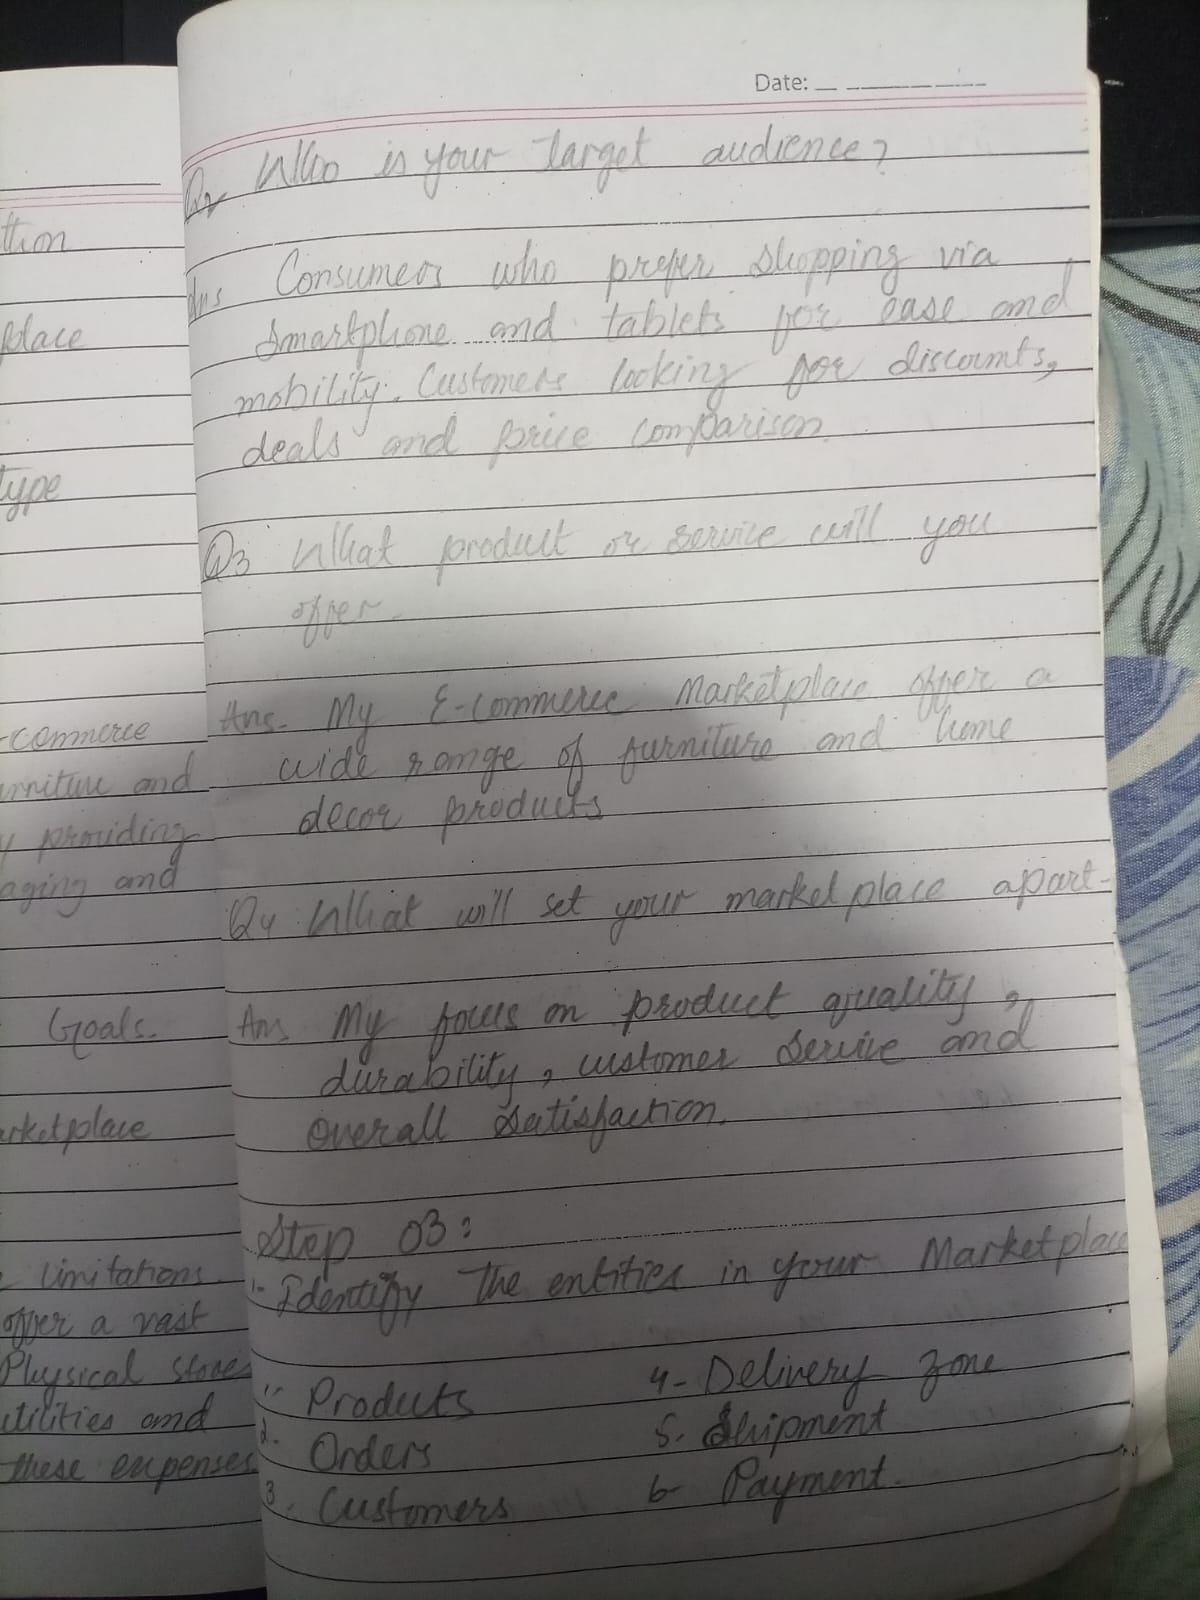 ttion
place
type
-commerce
urniture and
y providing
aging and
Goals.
arketplace
limitations.
offer a vast
Physical stores
utilities and
these expenses
Date:
Q2 Who is your target audience?
Ans Consumers who prefer shopping via
smartphone and tablets for ease and
mobility. Customers looking for discounts,
deals and price comparison.
Q3 What product or service will you
offer.
Ans- My E-commerce Marketplace offer a
wide range of furniture and home
decor products
Q4 What will set your market place apart-
Ans My focus on product quality,
durability, customer service and
overall satisfaction.
Step 03:
1- Identify The entities in your Marketplace
1- Products
2. Orders
3. Customers
4- Delivery zone
5. Shipment
6- Payment.